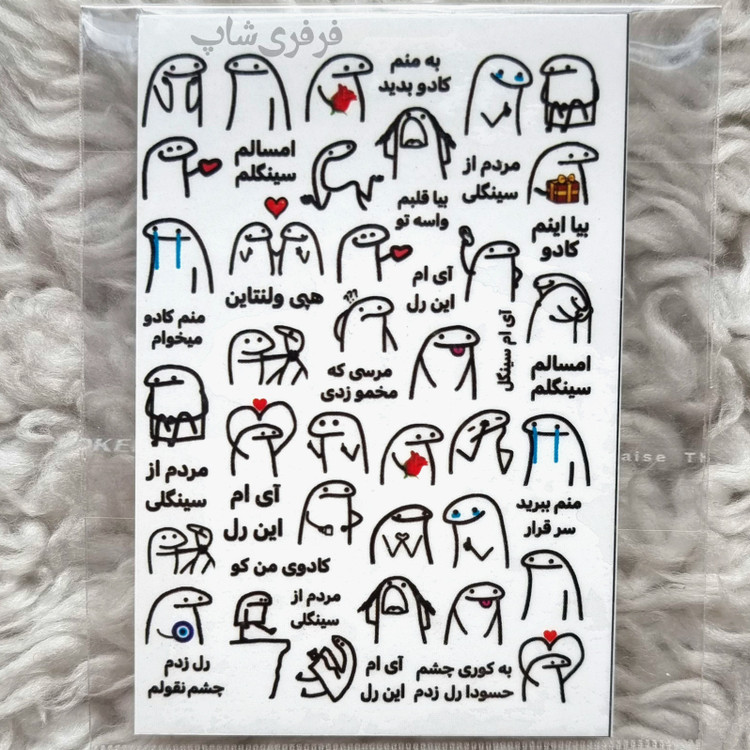 فرفری شاپ
به منم
کادو بدید
امسالم
سینگلم
مردم از
سینگلی
بیا قلبم
واسه تو
بیا اینم
کادو
آی ام
این رل
هپی ولنتاین
منم کادو
میخوام
???
آی ام سینگل
مرسی که
مخمو زدی
امسالم
سینگلم
aise TH
مردم از
سینگلی
آی ام
این رل
منم ببرید
سر قرار
کادوی من کو
مردم از
سینگلی
رل زدم
چشم نقولم
آی ام
این رل
به کوری چشم
حسودا رل زدم